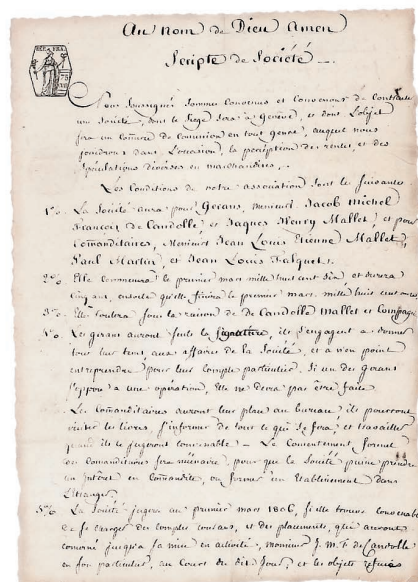 Au Nom de Dieu Amen
Scripte de Société
Nous soussignés sommes convenus et convenons de contracter
une Société, dont le siege sera à Genève, et dont l'objet
sera un comerce de comission en tout genre, auquel nous
joindrons dans l'occasion, la perception des rentes, et des
spéculations diverses en marchandises.
Les Conditions de notre association sont les suivantes
1º. La Société aura pour Gerans, messieurs Jacob Michel
François de Candolle, et Jaques Henry Mallet, et pour
comanditaires, Messieurs Jean Louis Etienne Mallet,
Paul Martin, et Jean Louis Falquet.
2º. Elle commencera le premier mars mille huit cent six, et durera
cinq ans, ensorte qu'elle finira le premier mars, mille huit cent onze
3º. Elle sous la raison de De Candolle Mallet et Compagnie
Les gerans auront seuls la signature, ils s'engagent à donner
tout leur tems, aux affaires de la Société, et à n'en point
entreprendre pour leur compte particulier. Si un des gerans
s'oppose à une opération, Elle ne devra pas être faite
Les Comanditaires auront leur place au bureau, ils pourront
visiter les livres, s'informer de tout ce qui se fera, et travailler
quand ils le jugeront convenable - Le Consentement formel
des comanditaires sera nécessaire, pour que la Société puisse prendre
un interet en Comandite, ou former un Etablissement dans
l'étranger.
La Société jugera au premier mars 1806, si elle trouve convenable
de se charger des comptes courans, et des placemens, que auront
concerné jusqu'à sa mise en activité, monsieur J. M. F. de Candolle
en son particulier, au Cours du dit Jour, et les objets refusés